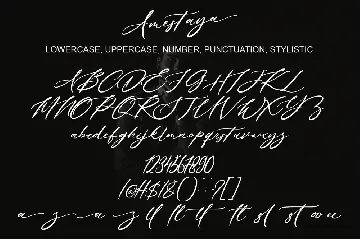 Amostaya
LOWERCASE, UPPERCASE, NUMBER, PUNCTUATION, STYLISTIC
ABCDEFGHIJKL
MNOPQRSTUVWXYZ
abcdefghijklmnopqrstuvwxyz
1234567890